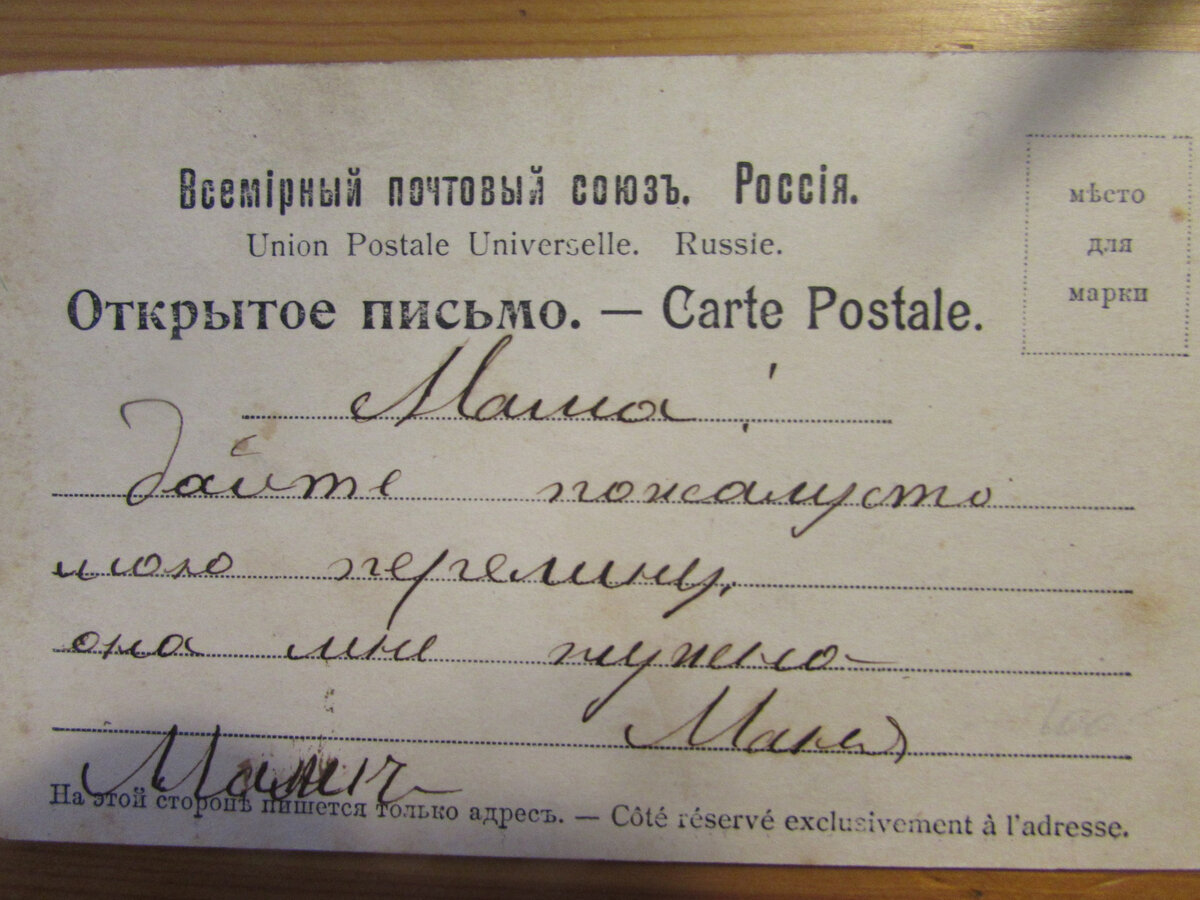 Всемірный почтовый союзъ. Россія.
Union Postale Universelle. Russie.
Открытое письмо. — Carte Postale.
мѣсто
для
марки
Мама!
Дайте пожалусто
мою перелину,
она мне нужна
Маня
На этой сторонѣ пишется только адресъ. — Côté réservé exclusivement à l'adresse.